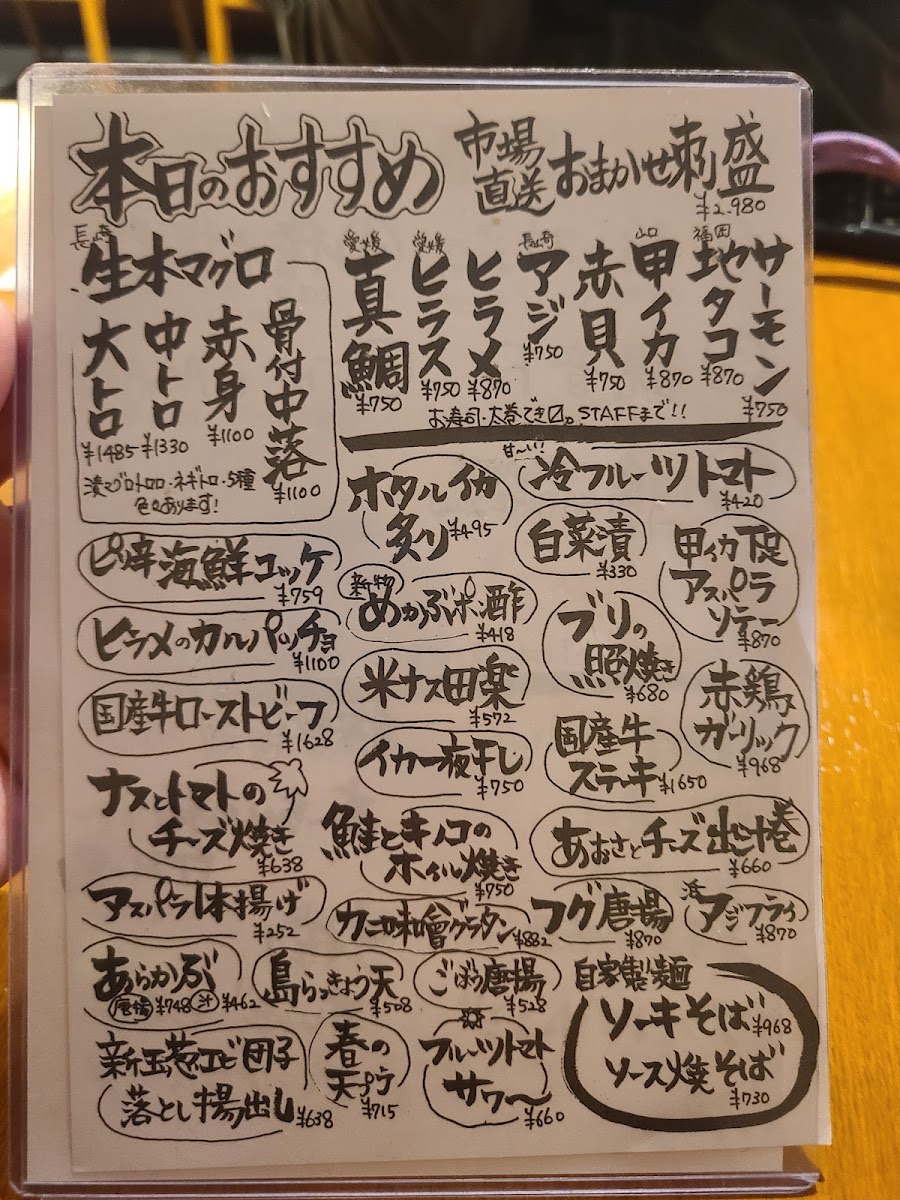 本日のおすすめ
市場直送 おまかせ刺盛
¥2.980
長崎
生本マグロ
大トロ
¥1485
中トロ
¥1330
赤身
¥1100
骨付中落
¥1100
漬マグロトロロ・ネギトロ・5種
色々あります!
愛媛
真鯛
¥750
愛媛
ヒラス
¥750
ヒラメ
¥870
長崎
アジ
¥750
赤貝
¥750
山口
甲イカ
¥870
福岡
地タコ
¥870
サーモン
¥750
お寿司・太巻できます。STAFFまで!!
ホタルイカ
炙り ¥495
甘〜い!
冷フルーツトマト
¥420
ピリ辛海鮮ユッケ
¥759
白菜漬
¥330
甲イカ下足
アスパラ
ソテー
¥870
新物
めかぶポン酢
¥418
ヒラメのカルパッチョ
¥1100
ブリの
照焼き
¥680
米ナス田楽
¥572
赤鶏
ガーリック
¥968
国産牛ローストビーフ
¥1628
イカ一夜干し
¥750
国産牛
ステーキ ¥1650
ナスとトマトの
チーズ焼き
¥638
鮭とキノコの
ホイル焼き
¥750
あおさとチーズ出汁巻
¥660
アスパラ1本揚げ
¥252
カニ味噌グラタン
¥882
フグ唐揚
¥870
浜
アジフライ
¥870
あらかぶ
唐揚 ¥748 汁 ¥462
島らっきょう天
¥508
ごぼう唐揚
¥528
自家製麺
ソーキそば ¥968
ソース焼そば
¥730
新玉葱エビ団子
落とし揚出し ¥638
春の
天プラ
¥715
フルーツトマト
サワ〜
¥660